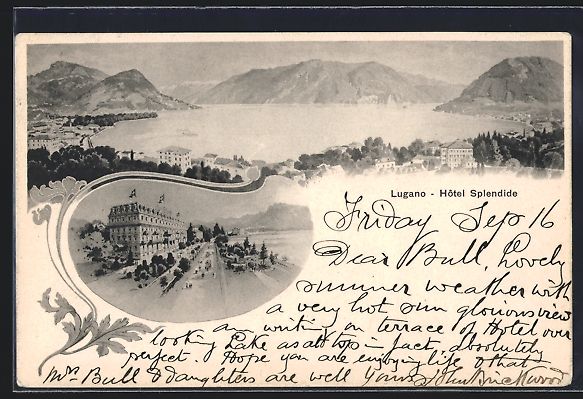 Lugano - Hôtel Splendide
Friday Sep 16
Dear Bull, Lovely
summer weather with
a very hot sun glorious view
am writing on terrace of Hotel over
looking Lake as all top in fact absolutely
perfect. I hope you are enjoying life & that
Mrs Bull & daughters are well Yours John Brickwood